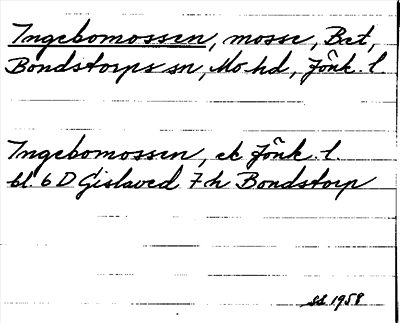 Ingebomossen, mosse, Bet,
Bondstorps sn, Mo hd, Jönk. l.
Ingebomossen, ek Jönk. l.
bl. 6 D Gislaved 7 h Bondstorp
SS 1958